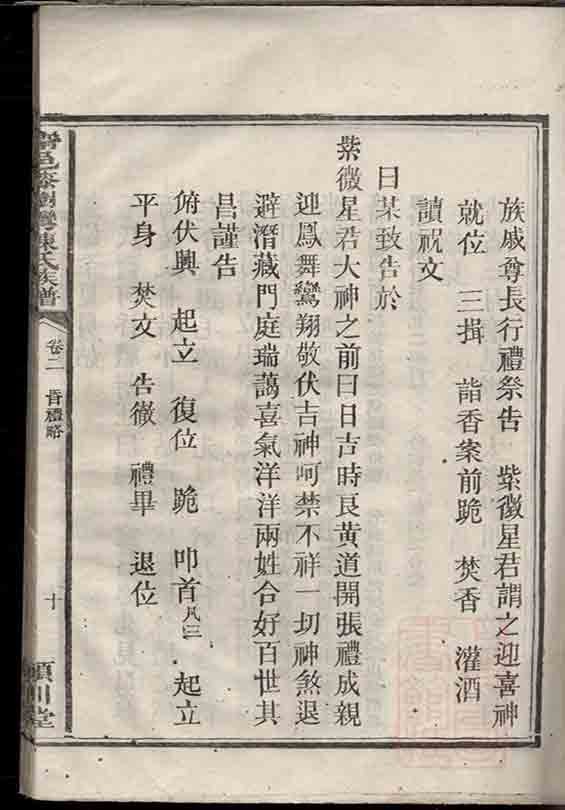 族戚尊長行禮祭告 紫微星君謂之迎喜神
就位 三揖 詣香案前跪 焚香 灌酒
讀祝文
日某致告於
紫微星君大神之前曰日吉時良黄道開張禮成親
迎鳳舞鸞翔敬伏吉神呵禁不祥一切神煞退
避潛藏門庭瑞藹喜氣洋洋兩姓合好百世其
昌謹告
俯伏興 起立 復位 跪 叩首凡三 起立
平身 焚文 告徹 禮畢 退位
陳氏族譜
卷二 昏禮略
十
潁川堂